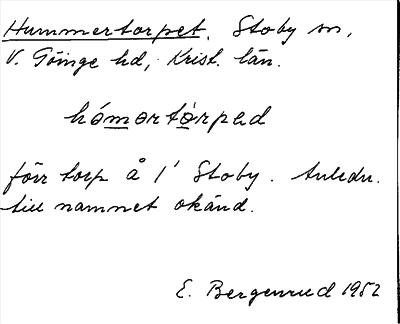 Hummertorpet. Stoby sn,
V. Göinge hd, Krist. län.
hómərtòrpəd
förr torp å 1' Stoby. Anledn.
till namnet okänd.
E. Bergenrud 1952